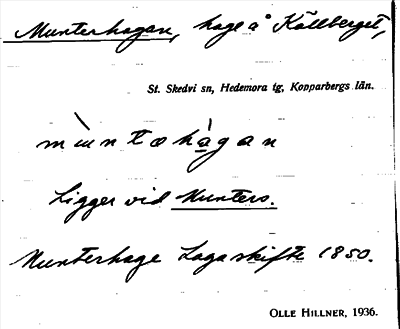 Munterhagan, hage å Källberget,
St. Skedvi sn, Hedemora tg, Kopparbergs län.
mùntohàgan
Ligger vid Munters.
Munterhage Laga skifte 1850.
OLLE HILLNER, 1936.